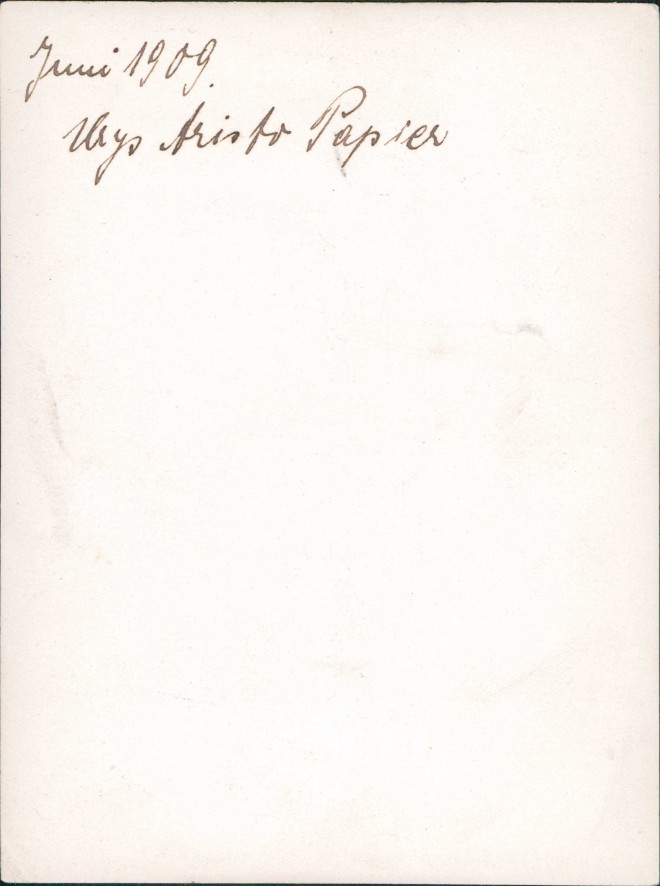 Juni 1909.
Aristo Papier